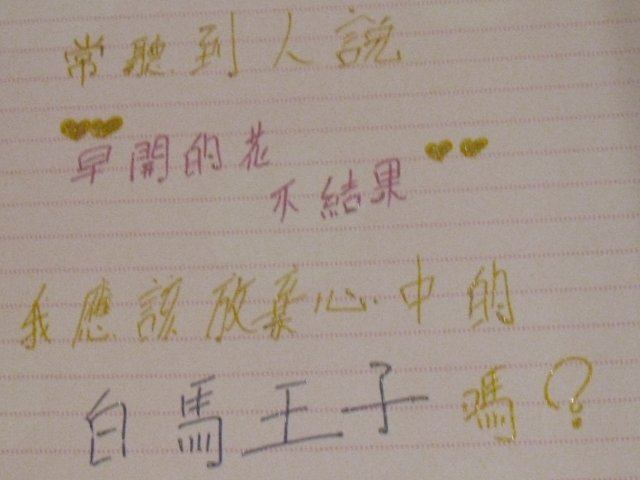 常聽到人說
早開的花
不結果
我應該放棄心中的
白馬王子嗎?